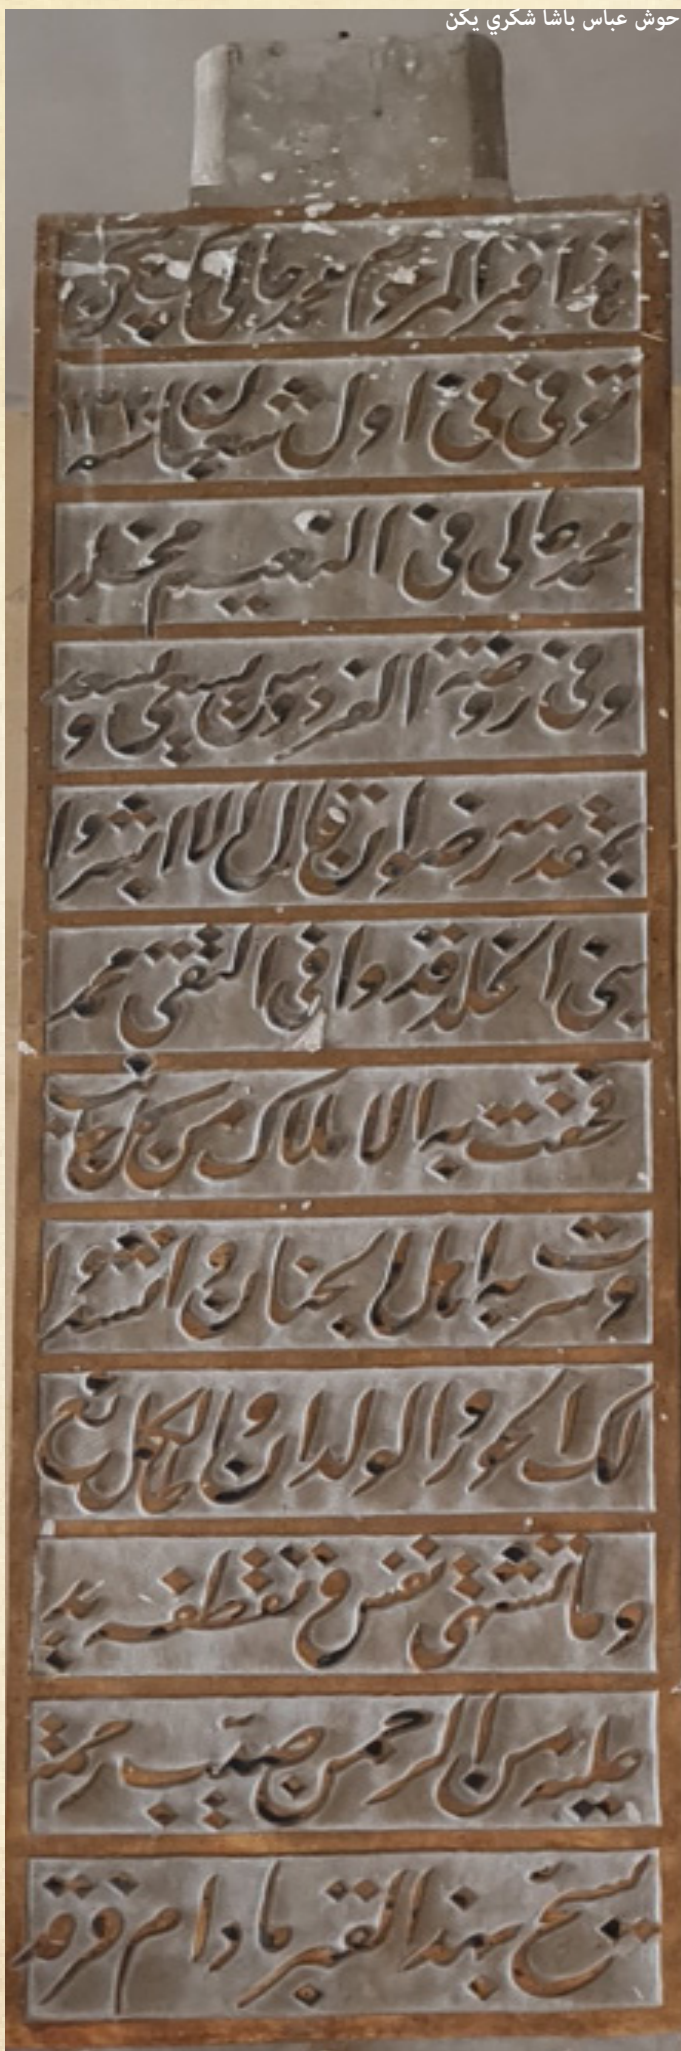 حوش عباس باشا شكري يكن
هذا قبر المرحوم محمد جالي بيك
توفى فى اول شعبان سنه ١٢٦٠
محمد جالى فى النعيم مخلد
وفى روضة الفردوس يسعى ويسعد
بمقدمه رضوان قال الا ابشروا
بنى الخلد قد وافى التقى محمد
فحفت به الاملاك من كل جانب
وسرت به اهل الجنان وانشدوا
لك الحور والولدان والكل
وما تشتهى نفس وتقطفه يد
عليه من الرحمن صيب رحمة
يسح بهذا القبر ما دام فرقد